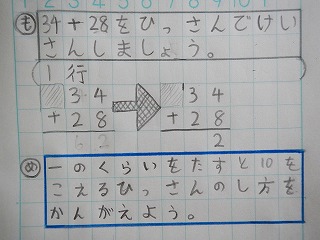 も 34+28をひっさんでけい
さんしましょう。
1行
34 34
+28 +28
62 2
め 一のくらいをたすと10を
こえるひっさんのし方を
かんがえよう。